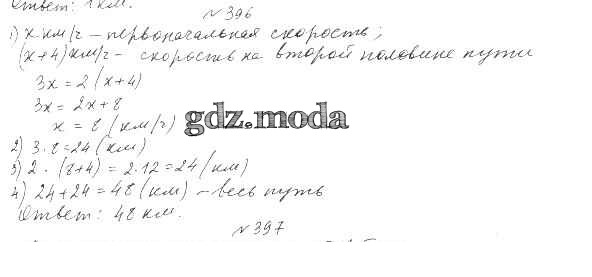 Ответ: 1 км.
№396
1) x км/ч – первоначальная скорость;
(x+4) км/ч – скорость на второй половине пути
3x = 2(x+4)
3x = 2x+8
x = 8 (км/ч)
gdz.moda
2) 3·8=24 (км)
3) 2·(8+4) = 2·12=24 (км)
4) 24+24=48 (км) – весь путь
Ответ: 48 км.
№397